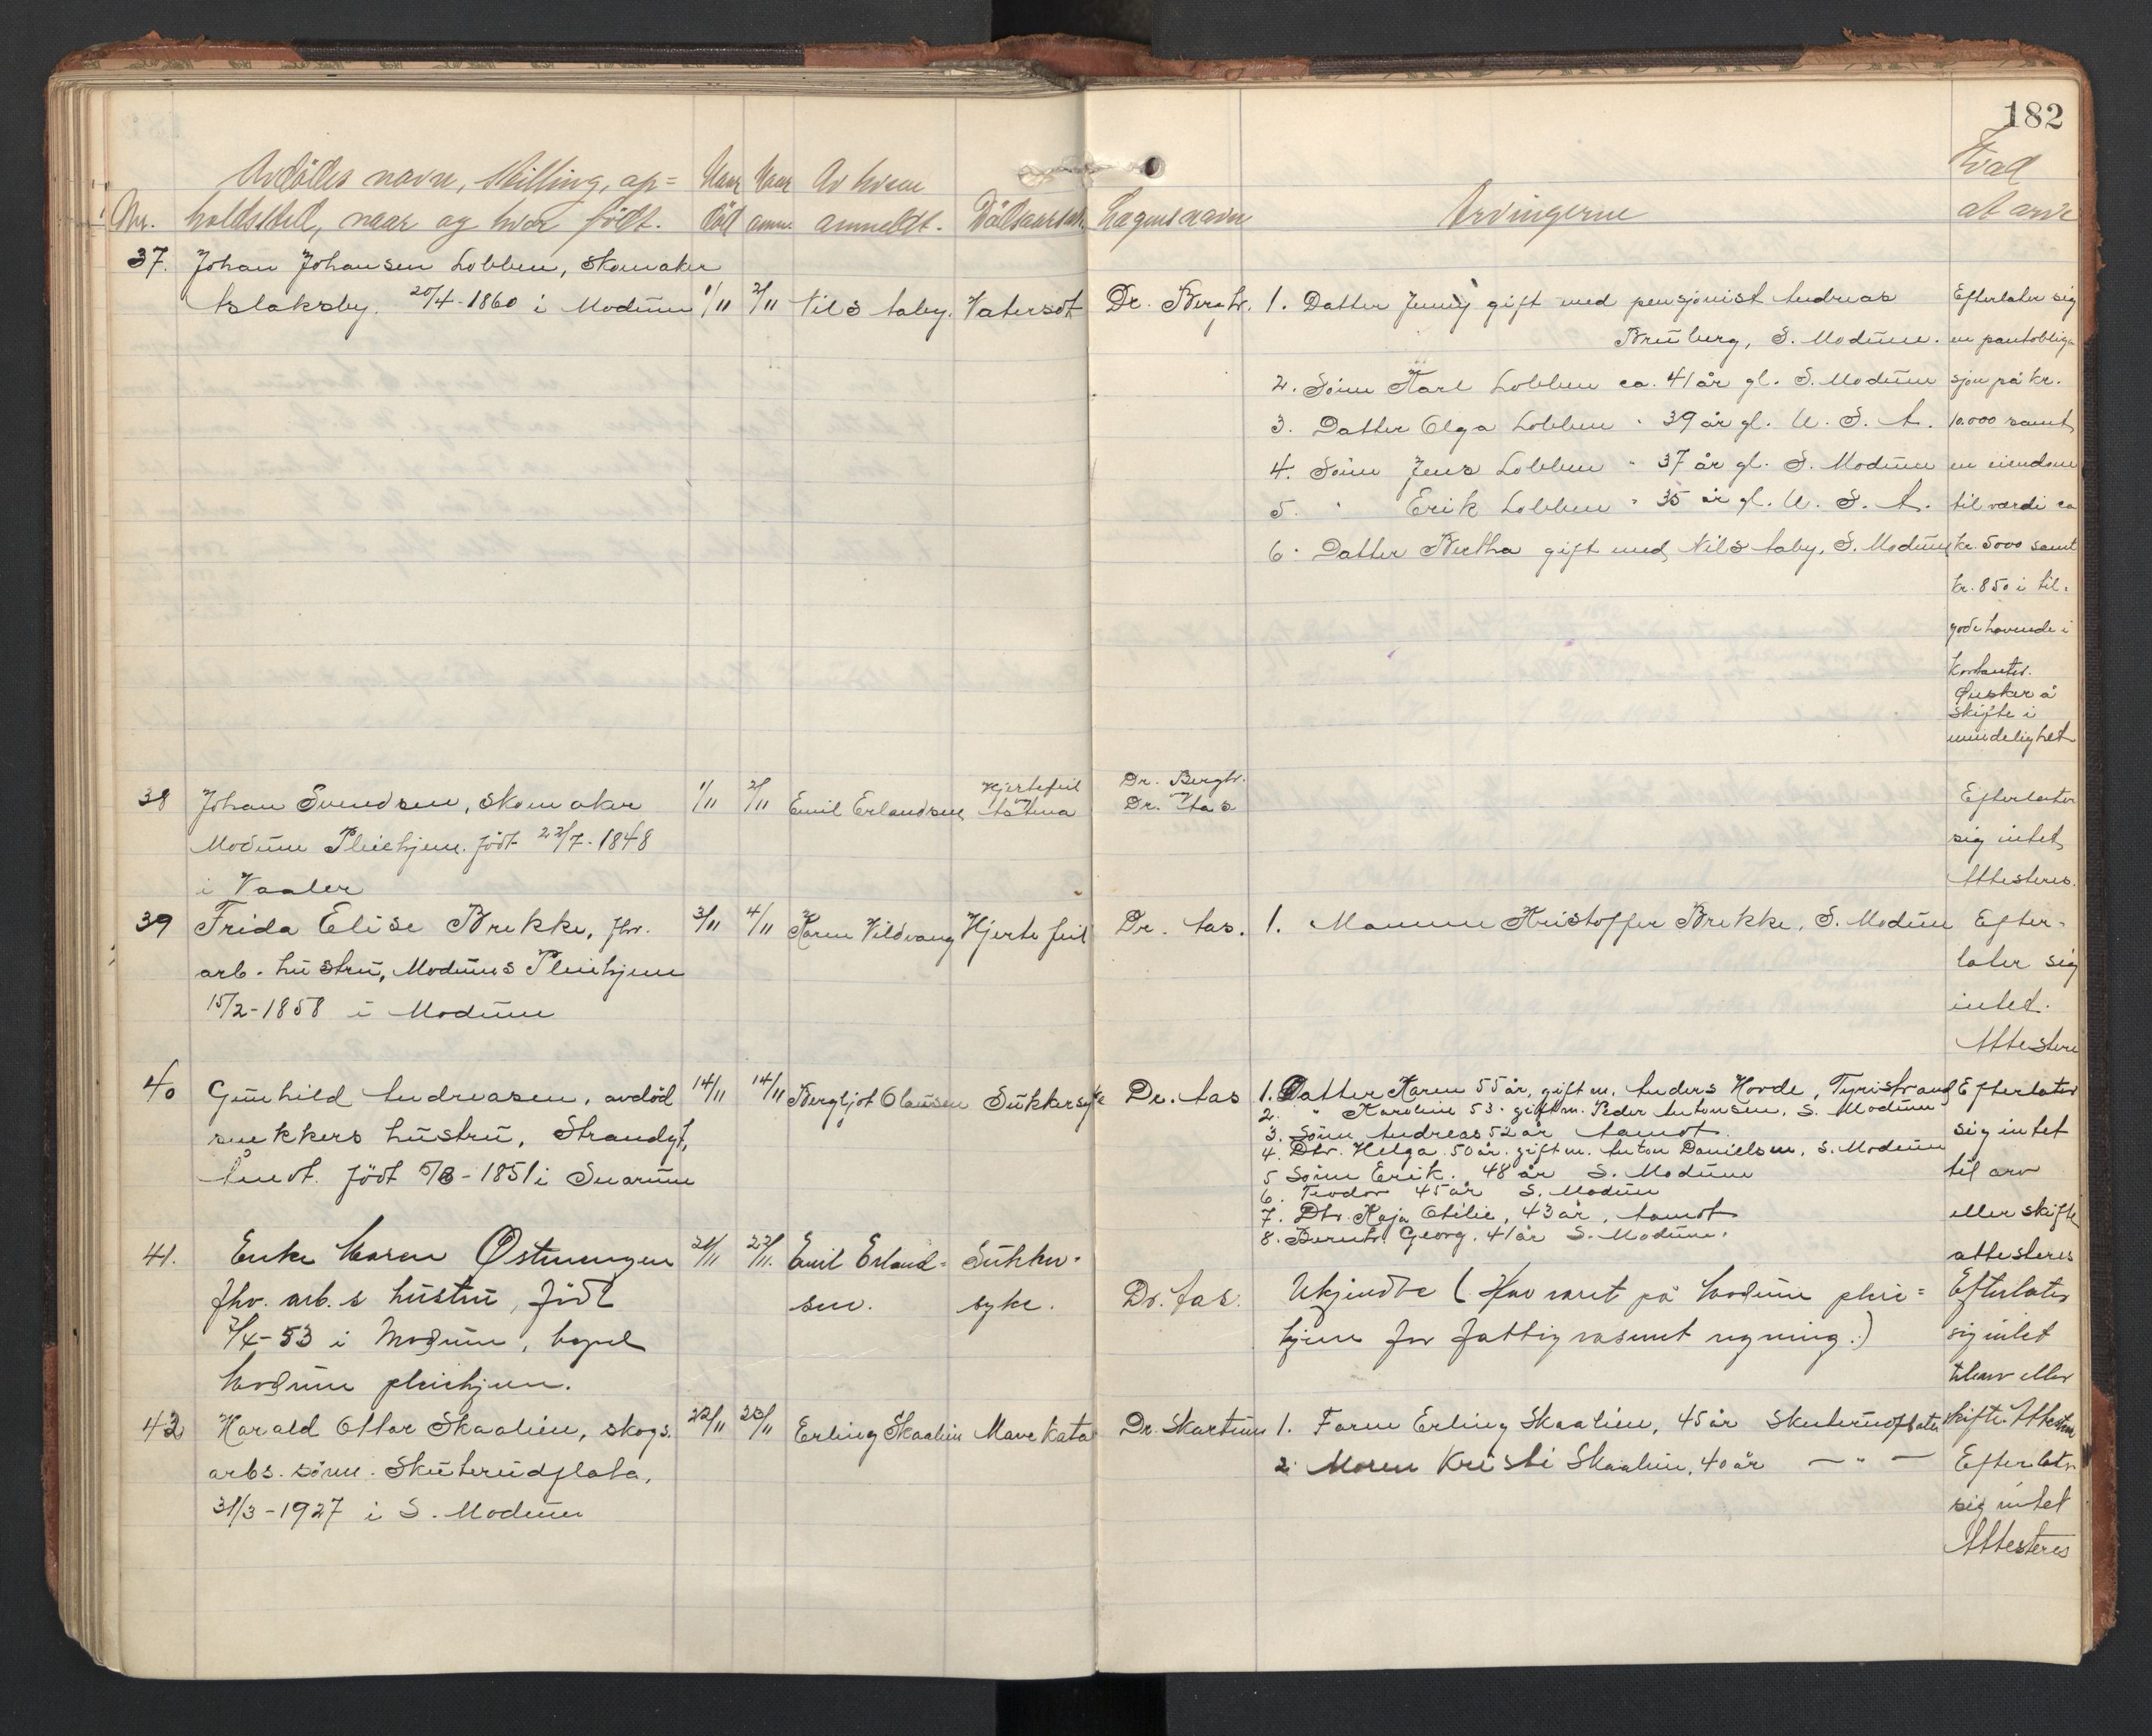 182
Avdødes navn, stilling, op= Naar Naar Av hvem Hvad
Nr. holdssted, naar og hvor født. død anm. anmeldt. Dødsaarsak. Lægens navn Arvingerne at arve
37. Johan Johansen Lobben, skomaker
Aslaksby. 20/4-1860 i Modum 1/11 2/11 Nils Aaby. Vatersot Dr. Bergh. 1. Datter Jenny gift med pensjonist Andreas Efterlater sig
Bruberg, S. Modum. en pantobliga
2. Sönn Karl Lobben ca. 41 år gl. S. Modum sjon på kr.
3. Datter Olga Lobben " 39 år gl. U. S. A. 10.000 samt
4. Sönn Jens Lobben " 37 år gl. S. Modum en eiendom
5. " Erik Lobben " 35 år gl. U. S. A. til værdi ca
6. Datter Bertha gift med Nils Aaby, S. Modum kr. 5000 samt
kr. 850 i til-
gode havende i
kontanter.
Ønsker å
skifte i
mindelighet
38 Johan Svendsen, skomaker 1/11 2/11 Emil Erlandsen Hjertefeil Astma Dr. Bergh. Dr. Aas Efterlater
Modum Pleiehjem. född 22/7-1848 sig intet
i Vaaler Attesteres.
39 Frida Elise Brekke, fhv. 3/11 4/11 Karen Vildvang Hjertefeil Dr. Aas. 1. Mannen Kristoffer Brekke, S. Modum Efter-
arb. hustru, Modums Pleiehjem later sig
15/2-1858 i Modum intet.
Attestere
40 Gunhild Andreasen, avdöd 14/11 14/11 Bergljot Olausen Sukkersyke Dr. Aas 1. Datter Karen 55 år, gift m. Anders Hovde, Tyristrand Efterlater
2. " Karoline 53. gift m. Peder Antonsen, S. Modum
snekkers hustru, Strandgt, 3. Sönn Andreas 52 år Aamot sig intet
4. Dtr. Helga 50 år. gift m. Anton Danielsen, S. Modum
Åmot. född 5/8-1851 i Snarum 5 Sönn Erik. 48 år S. Modum til arv
6. Teodor 45 år S. Modum
7. Dtr. Kaja Otilie, 43 år, Aamot eller skifte
8. Berntr. Georg. 41 år S. Modum.
41. Enke Maren Østmengen 21/11 22/11. Emil Erland= Sukker- attesteres
fhv. arb.s hustru, född sen. syke. Dr. Aas. Ukjendte (Har været på Modum pleie= Efterlater
7/4-53 i Modum, bopel hjem for fattigvæsenet regning.) sig intet
Modum pleiehjem. til arv eller
42 Harald Ottar Skaalien, skogs. 22/11 23/11 Erling Skaalien Mave kata Dr. Skartum 1. Faren Erling Skaalien, 45 år Skuterudflata skifte. Attester
arbs. sönn. Skuterudflata, 2. Moren Kristi Skaalien, 40 år — " — Efterlater
31/3-1927 i S. Modum sig intet
Attesteres